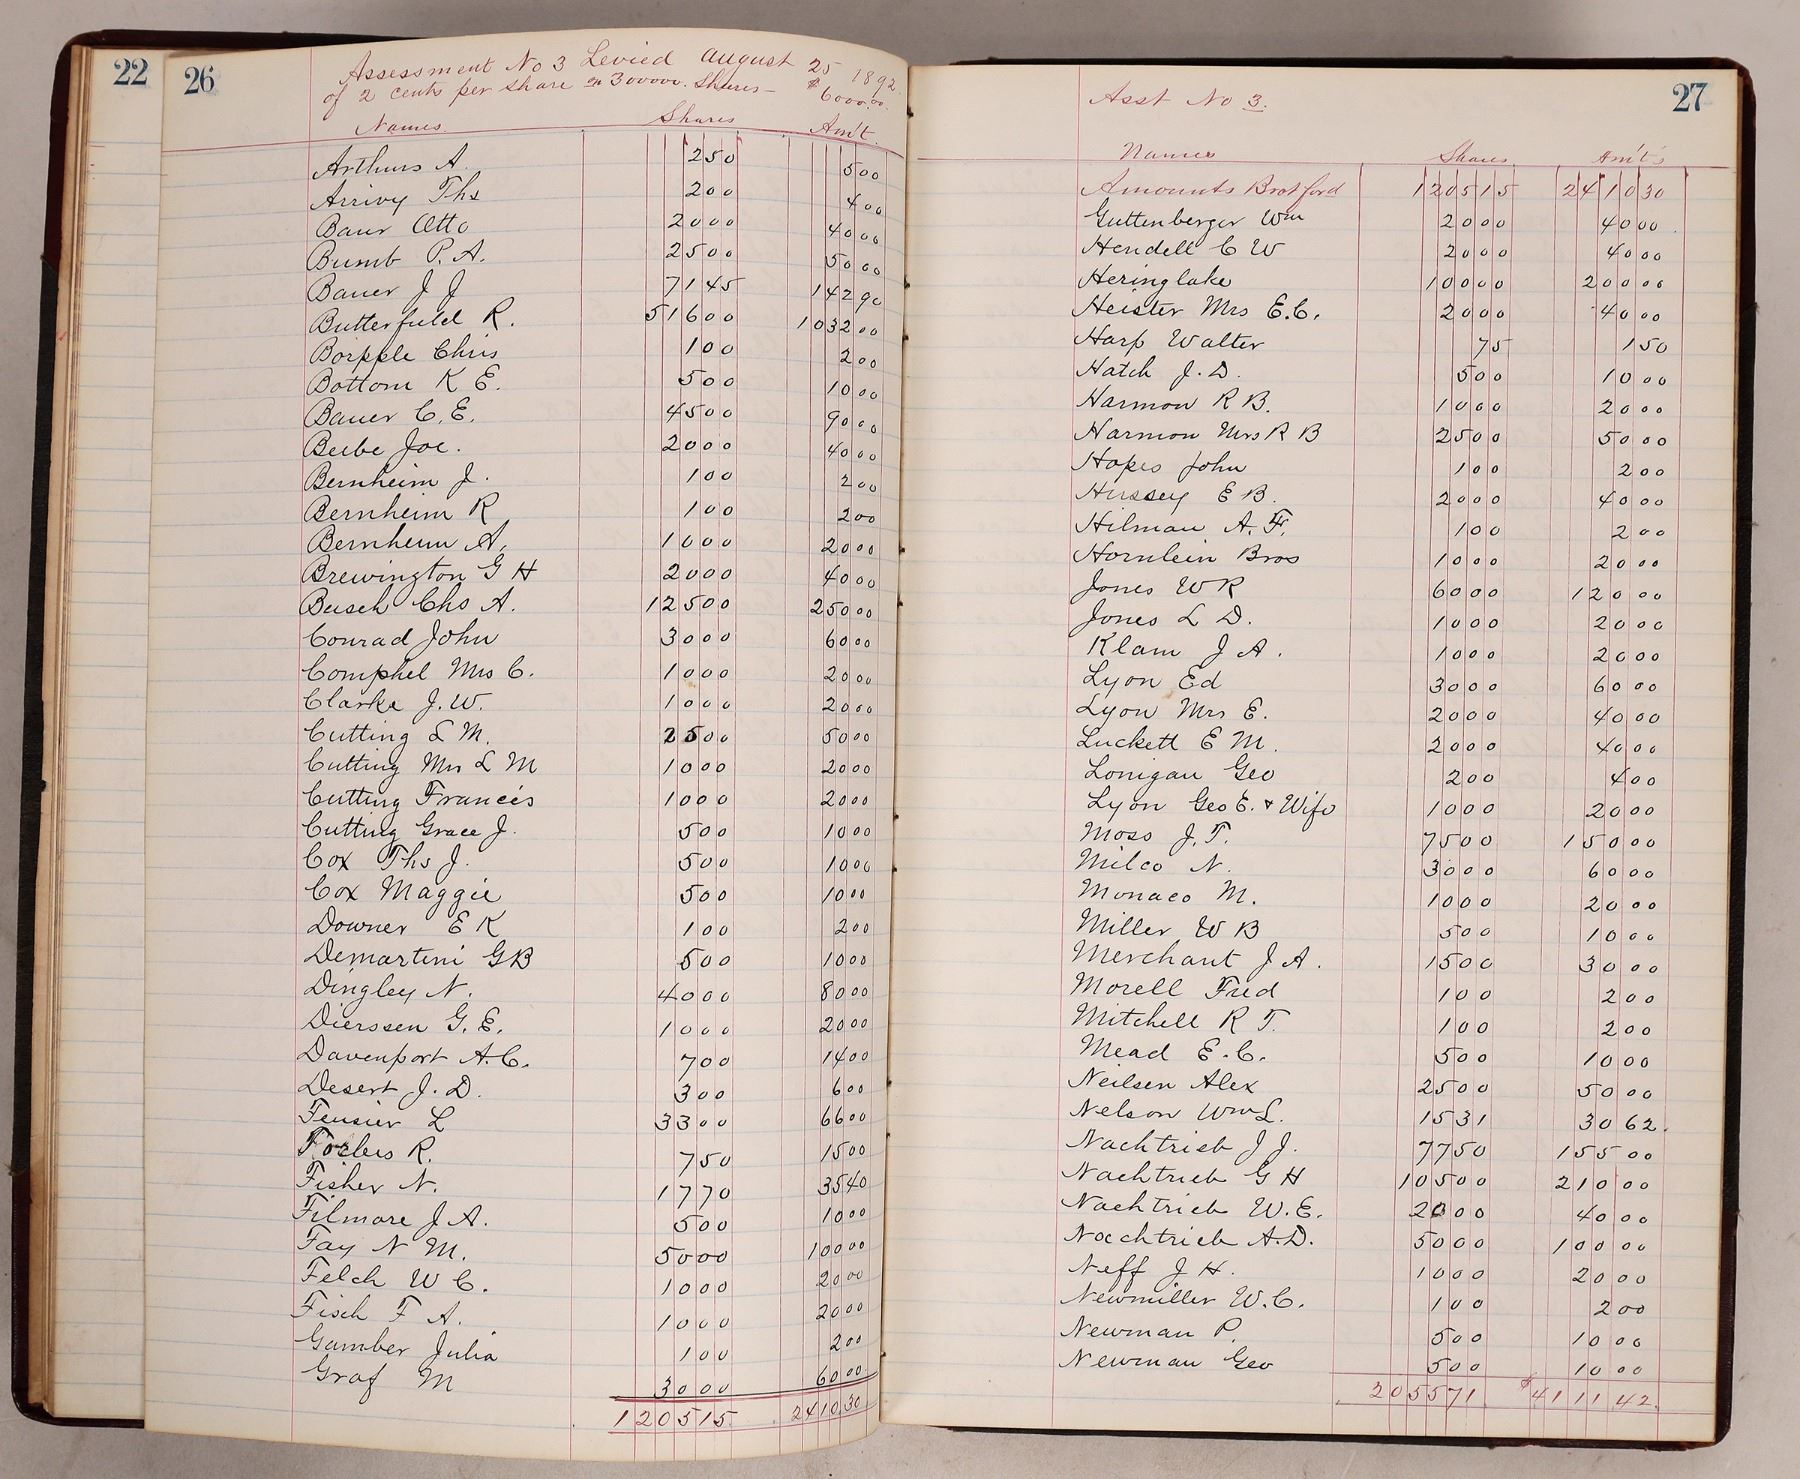 22
26
Assessment No 3 Levied August 25 1892.
of 2 cents per share on 300000. Shares — $6000.00
Names. Shares Am't.
Arthurs A. 250 500
Arrivy Ths 200 400
Baur Otto 2000 4000
Bumb P. A. 2500 5000
Bauer J J 7145 14290
Butterfield R. 51600 103200
Borpple Chris 100 200
Bottom K E. 500 1000
Bauer C. E. 4500 9000
Beebe Joe. 2000 4000
Bernheim J. 100 200
Bernheim R 100 200
Bernheim A. 1000 2000
Brewington G H 2000 4000
Busch Chs A. 12500 25000
Conrad John 3000 6000
Comphel Mrs C. 1000 2000
Clarke J. W. 1000 2000
Cutting L M. 2500 5000
Cutting Mrs L M 1000 2000
Cutting Francis 1000 2000
Cutting Grace J. 500 1000
Cox Ths J. 500 1000
Cox Maggie 500 1000
Downer E K 100 200
Demartini G B 500 1000
Dingley N. 4000 8000
Dierssen G. E. 1000 2000
Davenport A. C. 700 1400
Desert J. D. 300 600
Feusier L 3300 6600
R. 750 1500
Fisher N. 1770 3540
Filmore J A. 500 1000
Fay N M. 5000 10000
Felch W C. 1000 2000
Fisch F A. 1000 2000
Gamber Julia 100 200
Graf M 3000 6000
120515. 241030
27
Asst No 3.
Names Shares. Am't's
Amounts Brot ford 120515 241030
Guttenberger Wm 2000 4000
Hendell C W 2000 4000
Heringlake 10000 20000
Heister Mrs E. C. 2000 4000
Harp Walter 75 150
Hatch J. D. 500 1000
Harmon R B. 1000 2000
Harmon Mrs R B 2500 5000
Hopes John 100 200
Hussey E B. 2000 4000
Hilman A. F. 100 200
Hornlein Bros 1000 2000
Jones W R 6000 12000
Jones L D. 1000 2000
Klam J A. 1000 2000
Lyon Ed 3000 6000
Lyon Mrs E. 2000 4000
Luckett E M. 2000 4000
Lonigan Geo 200 400
Lyon Geo E. & Wife 1000 2000
Moss J. T. 7500 15000
Milco N. 3000 6000
Monaco M. 1000 2000
Miller W B 500 1000
Merchant J A. 1500 3000
Morell Fred 100 200
Mitchell R T. 100 200
Mead E. C. 500 1000
Neilsen Alex 2500 5000
Nelson Wm L. 1531 3062.
Nachtrieb J J. 7750 15500
Nachtrieb G H 10500 21000
Nachtrieb W. E. 2000 4000
Nachtrieb A. D. 5000 10000
Neff J H. 1000 2000
Newmiller W. C. 100 200
Newman P. 500 1000
Newman Geo 500 1000
205571 $411142.